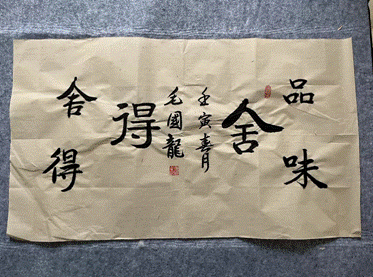 品味
舍
壬寅春月
毛國龍
得
舍得